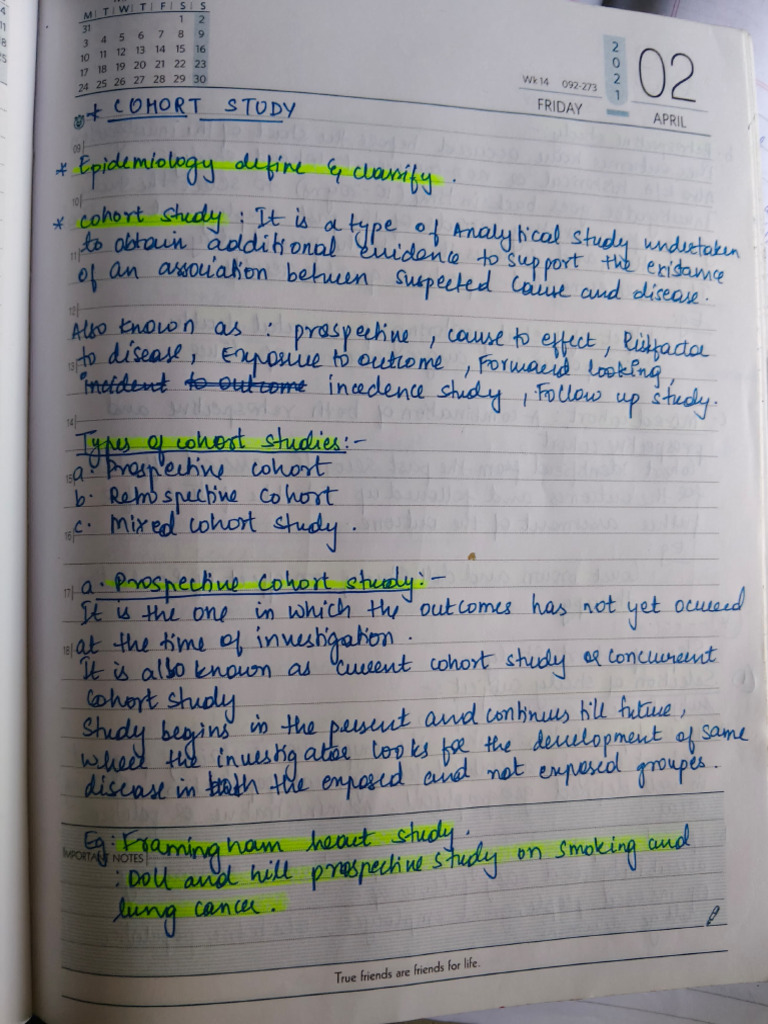 M T W T F S S
31 1 2
3 4 5 6 7 8 9
10 11 12 13 14 15 16
17 18 19 20 21 22 23
24 25 26 27 28 29 30
Wk 14 092-273
FRIDAY
2021
02
APRIL
* COHORT STUDY
09
* Epidemiology define & classify.
10
* cohort study : It is a type of Analytical study undertaken
11 to obtain additional evidence to support the existance
of an association between suspected cause and disease.
12
Also known as : prospective, cause to effect, Riskfactor
13 to disease, Exposure to outcome, Forward looking,
incident to outcome incedence study, Follow up study.
14
Types of cohort studies:-
15 a. Prospective cohort
b. Retrospective cohort
16 c. Mixed cohort study.
17 a. Prospective cohort study:-
It is the one in which the outcomes has not yet occured
18 at the time of investigation.
It is also known as current cohort study or concurrent
cohort study
Study begins in the present and continues till future,
where the investigator looks for the development of same
disease in both the exposed and not exposed groupes.
Eg: Framingham heart study.
IMPORTANT NOTES
: Doll and hill prospective study on smoking and
lung cancer.
True friends are friends for life.